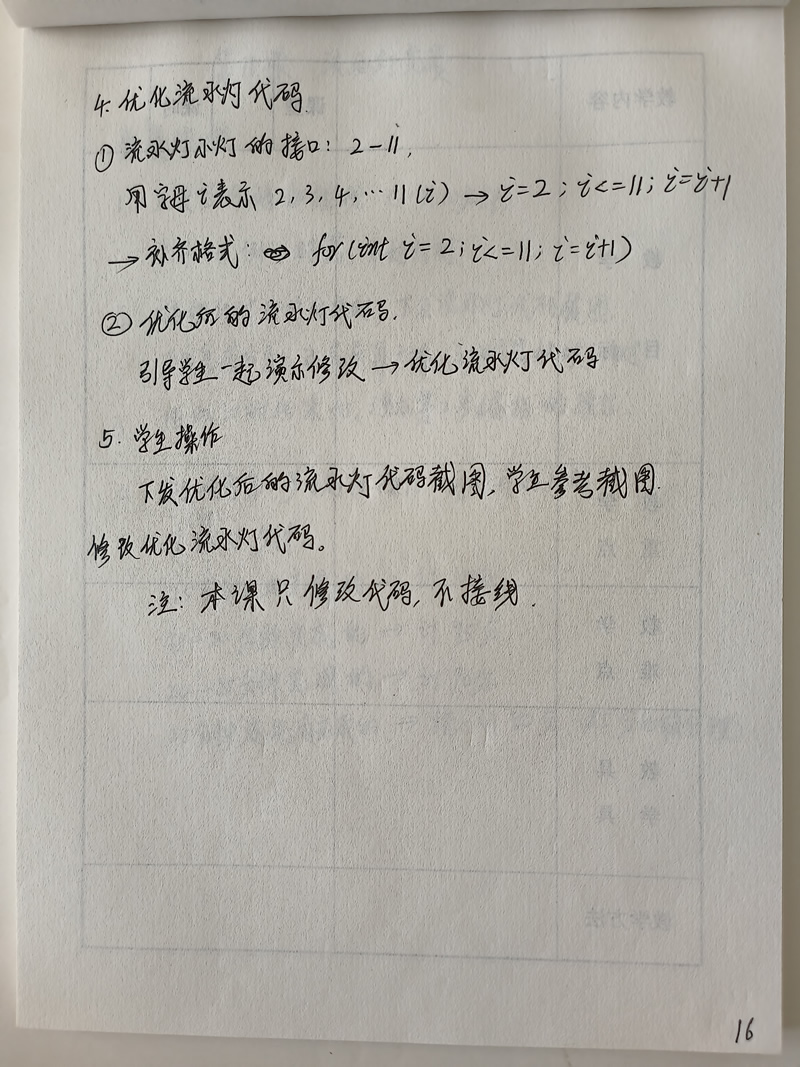 4. 优化流水灯代码.
① 流水灯小灯的接口: 2-11,
用字母i表示 2,3,4,…11(i) → i=2; i<=11; i=i+1
→ 补齐格式: for(int i=2; i<=11; i=i+1)
② 优化后的流水灯代码.
引导学生一起演示修改 → 优化流水灯代码
5. 学生操作
下发优化后的流水灯代码截图, 学生参考截图.
修改优化流水灯代码。
注: 本课只修改代码, 不接线.
16